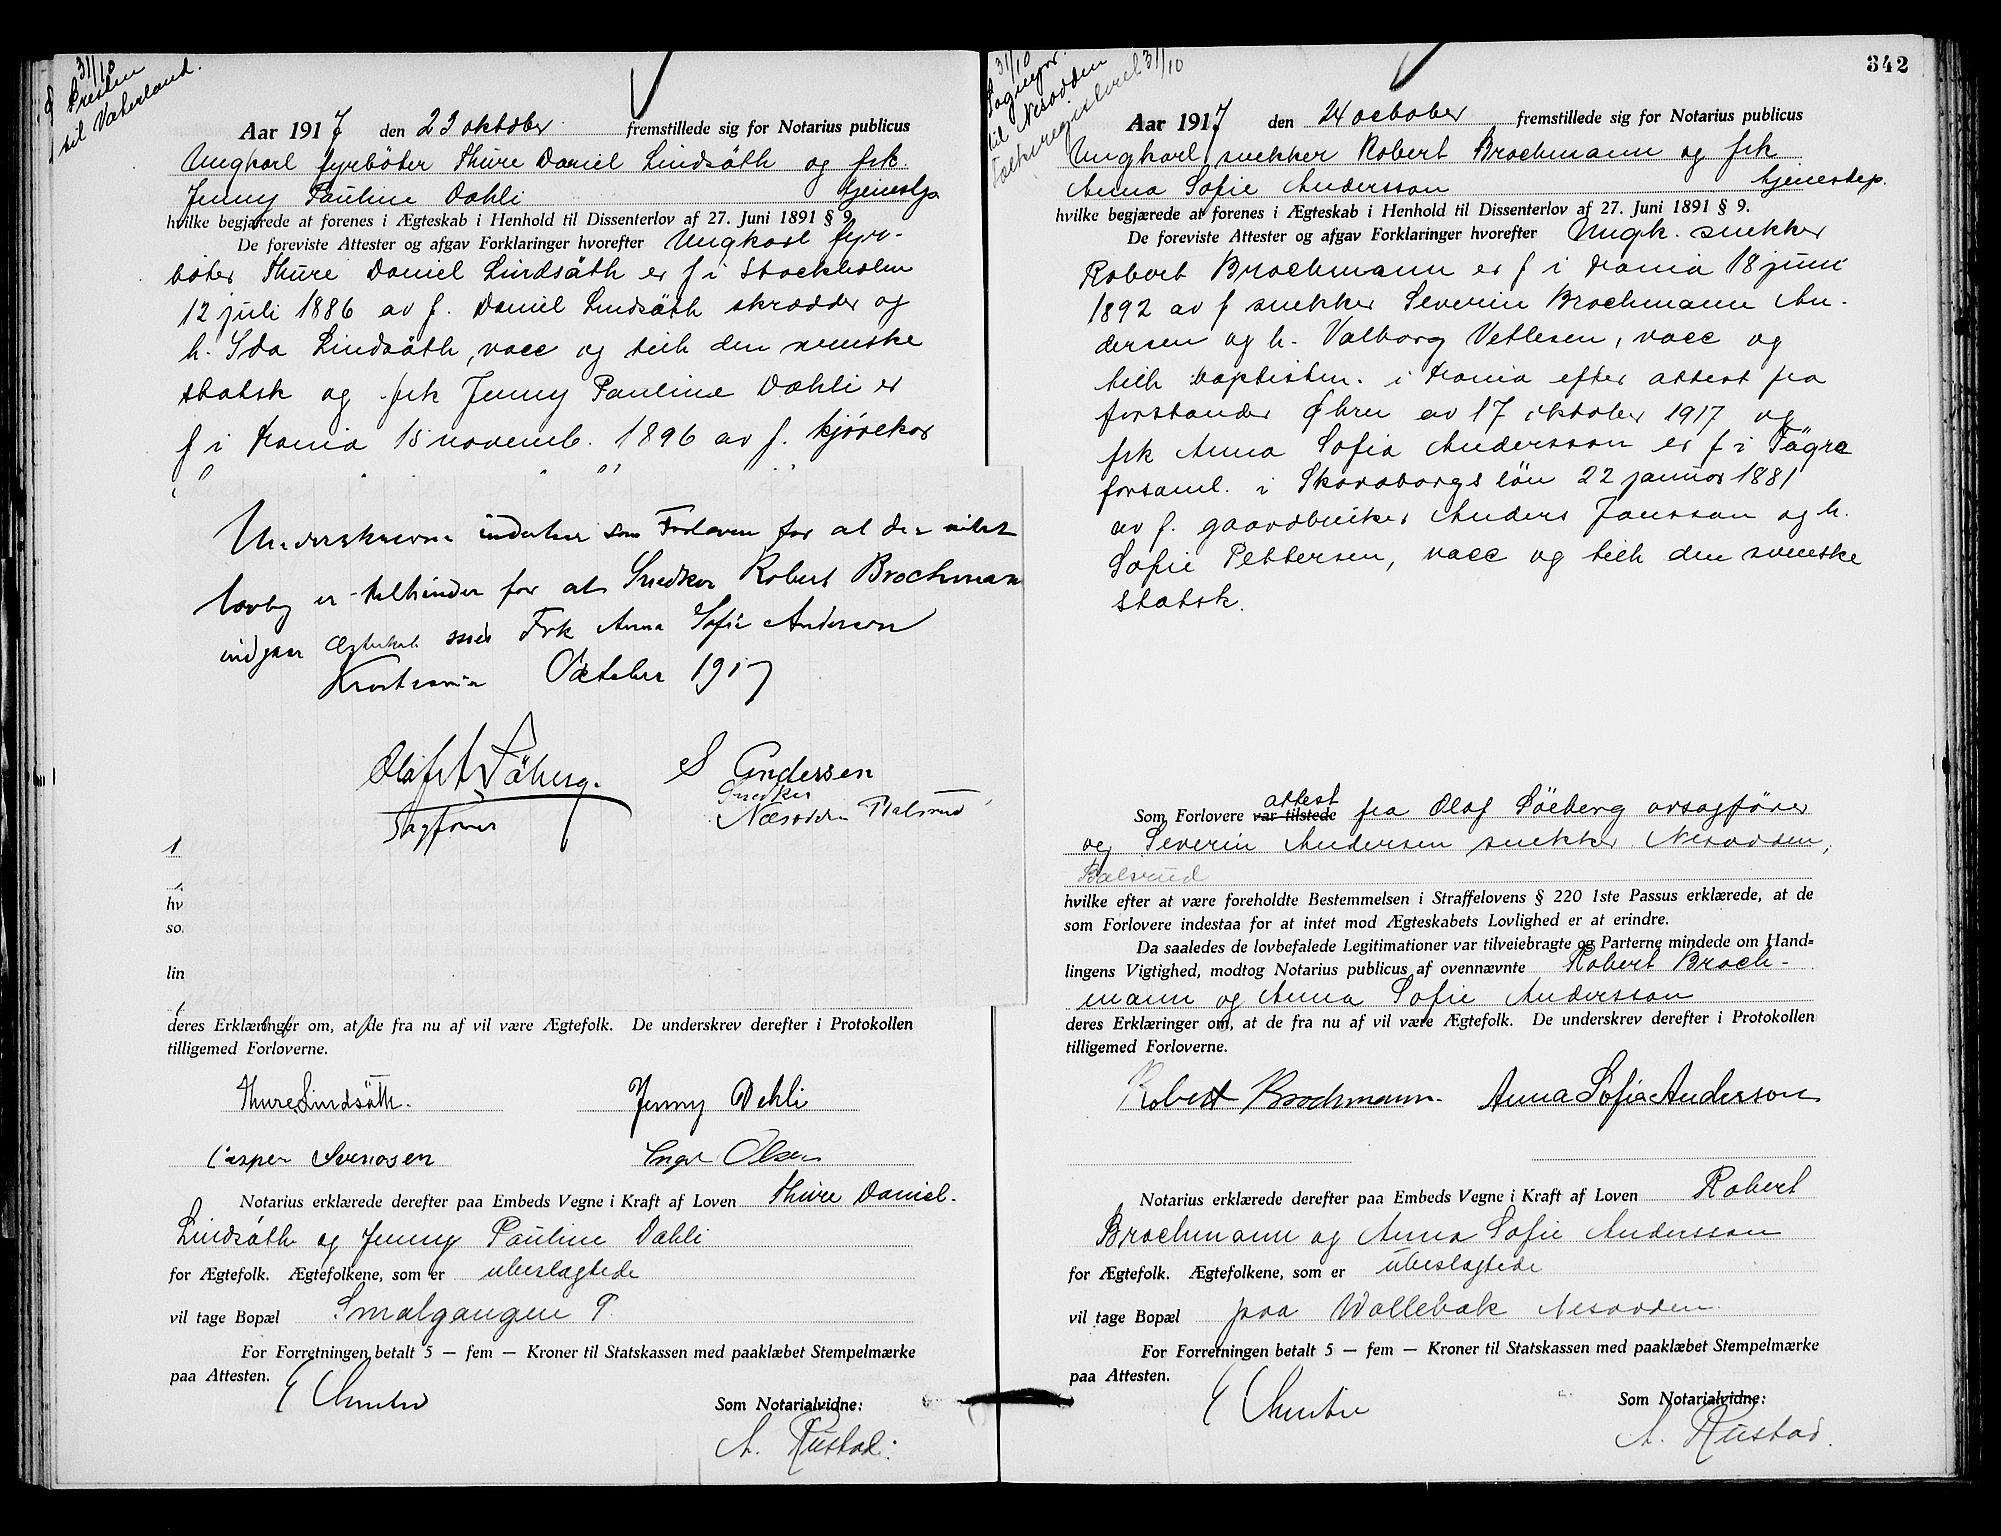 31/10
Presten
til Vaterland.
Aar 1917 den 23 oktober fremstillede sig for Notarius publicus
Ungkarl fyrbøter Thure Daniel Lindsäth og frk.
Jenny Pauline Dahli tjenestp
hvilke begjærede at forenes i Ægteskab i Henhold til Dissenterlov af 27. Juni 1891 § 9.
De foreviste Attester og afgav Forklaringer hvorefter Ungkarl fyr-
bøter Thure Daniel Lindsäth er f i Stockholm
12 juli 1886 av f. Daniel Lindsäth skrædder og
h. Ida Lindsäth, vacc og tilh den svenske
statsk og frk Jenny Pauline Dahli er
f i Krania 15 novemb. 1896 av f. kjørekar
Underskrevne indestaar som Forlovere for at der intet
lovlig er tilhinder for at Snedker Robert Brochman
indgaar Ægteskab med Frk Anna Sofie Anderson
Kristiania October 1917
Olaf Söberg. S Andersen
Sagfører Snedker
Næsodden Balsrud
hv
so
lin
deres Erklæringer om, at de fra nu af vil være Ægtefolk. De underskrev derefter i Protokollen
tilligemed Forloverne.
Thure Lindsäth. Jenny Dehli
Casper Svensen Inga Olsen
Notarius erklærede derefter paa Embeds Vegne i Kraft af Loven Thure Daniel
Lindsäth og Jenny Pauline Dahli
for Ægtefolk. Ægtefolkene, som er ubeslægtede
vil tage Bopæl Smalgangen 9.
For Forretningen betalt 5 — fem — Kroner til Statskassen med paaklæbet Stempelmærke
paa Attesten.
Som Notarialvidne:
A. Rustad.
342
31/10
Sognepr.
til Nesodden
Folkeregisteret 31/10
Aar 1917 den 24 october fremstillede sig for Notarius publicus
Ungkarl snekker Robert Brochmann og frk
Anna Sofie Andersson tjenestep.
hvilke begjærede at forenes i Ægteskab i Henhold til Dissenterlov af 27. Juni 1891 § 9.
De foreviste Attester og afgav Forklaringer hvorefter Ungk. snekker
Robert Brochmann er f i Krania 18 juni
1892 av f snekker Severin Brochmann An-
dersen og h. Valborg Vetlesen, vacc og
tilh baptistm. i Krania efter attest fra
forstander Øhrn av 17 oktober 1917 og
frk Anna Sofia Andersson er f i Fägre
forsaml. i Skaraborgs län 22 januar 1881
av f. gaardbruker Anders Jansson og h.
Sofie Pettersen, vacc og tilh den svenske
statsk.
Som Forlovere var tilstede attest fra Olaf Söeberg orsagfører
og Severin Andersen snekker Nesodden,
Balsrud
hvilke efter at være foreholdte Bestemmelsen i Straffelovens § 220 1ste Passus erklærede, at de
som Forlovere indestaa for at intet mod Ægteskabets Lovlighed er at erindre.
Da saaledes de lovbefalede Legitimationer var tilveiebragte og Parterne mindede om Hand=
lingens Vigtighed, modtog Notarius publicus af ovennævnte Robert Broch-
mann og Anna Sofie Andersson
deres Erklæringer om, at de fra nu af vil være Ægtefolk. De underskrev derefter i Protokollen
tilligemed Forloverne.
Robert Brochmann. Anna Sofia Anderson
Notarius erklærede derefter paa Embeds Vegne i Kraft af Loven Robert
Brochmann og Anna Sofie Andersson
for Ægtefolk. Ægtefolkene, som er ubeslægtede
vil tage Bopæl paa Wollebæk Nesodden
For Forretningen betalt 5 — fem — Kroner til Statskassen med paaklæbet Stempelmærke
paa Attesten.
Som Notarialvidne:
A. Rustad.